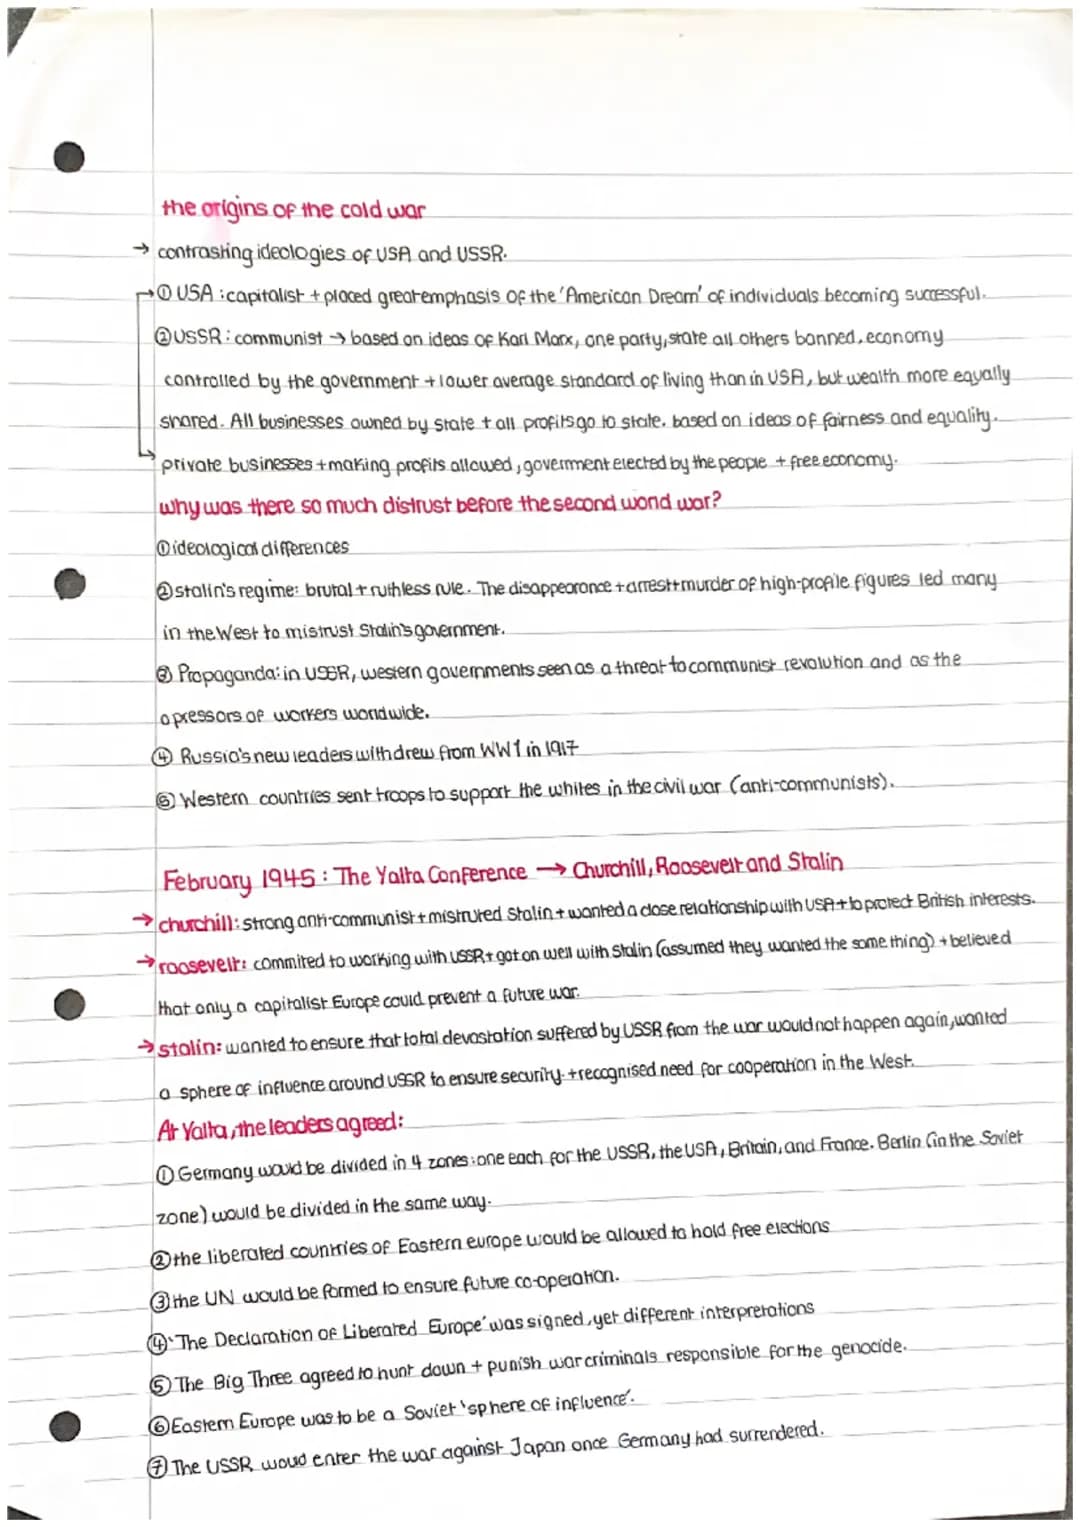 the origins of the cold war
→ contrasting ideologies of USA and USSR.
→① USA : capitalist + placed great emphasis of the 'American Dream' of individuals becoming successful.
② USSR : communist → based on ideas of Karl Marx, one party, state all others banned, economy
controlled by the government + lower average standard of living than in USA, but wealth more equally
shared. All businesses owned by state + all profits go to state. based on ideas of fairness and equality.
private businesses + making profits allowed, goverment elected by the people + free economy.
why was there so much distrust before the second world war?
① ideological differences
② stalin's regime: brutal + ruthless rule. The disappearance + arrest + murder of high-profile figures led many
in the West to mistrust Stalin's government.
③ Propaganda: in USSR, western governments seen as a threat to communist revolution and as the
opressors of workers worldwide.
④ Russia's new leaders withdrew from WW1 in 1917
⑤ Western countries sent troops to support the whites in the civil war (anti-communists).
February 1945 : The Yalta Conference → Churchill, Roosevelt and Stalin
→ churchill: strong anti-communist + mistruted Stalin + wanted a close relationship with USA + to protect British interests.
→ roosevelt: commited to working with USSR + got on well with Stalin (assumed they wanted the same thing) + believed
that only a capitalist Europe could prevent a future war.
→ stalin: wanted to ensure that total devastation suffered by USSR from the war would not happen again, wanted
a sphere of influence around USSR to ensure security. + recognised need for cooperation in the West.
At Yalta, the leaders agreed:
① Germany would be divided in 4 zones: one each for the USSR, the USA, Britain, and France. Berlin (in the Soviet
zone) would be divided in the same way.
② the liberated countries of Eastern europe would be allowed to hold free elections
③ the UN would be formed to ensure future co-operation.
④ 'The Declaration of Liberated Europe' was signed, yet different interpretations
⑤ The Big Three agreed to hunt down + punish war criminals responsible for the genocide.
⑥ Eastern Europe was to be a Soviet 'sphere of influence'.
⑦ The USSR woud enter the war against Japan once Germany had surrendered.